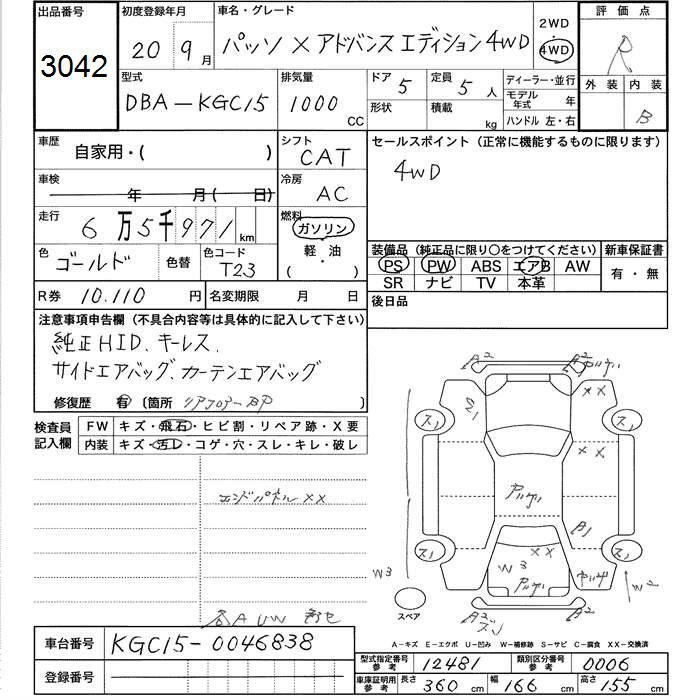 出品番号 初度登録年月 車名・グレード 2WD 評価点
3042 20 9月 パッソ X アドバンスエディション 4WD 4WD R
型式 排気量 ドア 5 定員 5人 ディーラー・並行 外装 内装
DBA-KGC15 1000 CC 形状 積載 kg モデル年式 年 B
ハンドル 左・右
車歴 自家用・( ) シフト CAT セールスポイント (正常に機能するものに限ります)
車検 年 月( 日) 冷房 AC 4WD
走行 6万5千971km 燃料 ガソリン
軽・油
( ・ )
色 ゴールド 色替 色コード T23 装備品 (純正品に限り○をつけてください) 新車保証書
PS PW ABS エアB AW 有・無
SR ナビ TV 本革
R券 10,110円 名変期限 月 日 後日品
注意事項申告欄 (不具合内容等は具体的に記入して下さい)
純正HID、キーレス、
サイドエアバッグ、カーテンエアバッグ
修復歴 有 (箇所 リアフロアーBP
検査員記入欄 FW キズ・飛石・ヒビ割・リペア跡・X要
内装 キズ・汚レ・コゲ・穴・スレ・キレ・破レ
エンドパネル XX
A2 A2
XX
XX
A1
XX
W3 W3 W2
A2 A2
スペア
A-キズ E-エクボ U-凹み W-補修跡 S-サビ C-腐食 XX-交換済
車台番号 KGC15-0046838
登録番号
型式指定番号参考 12481 類別区分番号参考 0006
車庫証明用参考 長さ 360cm 幅 166cm 高さ 155cm